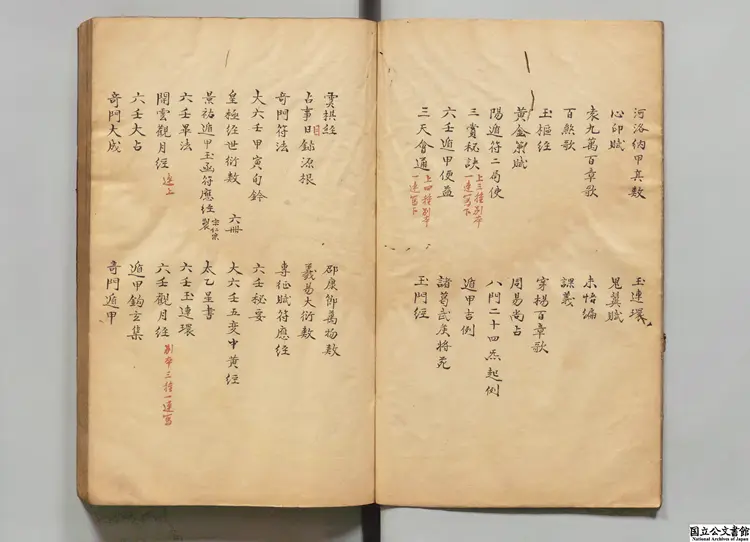 河洛納甲真数
心印賦
袁九萬百章歌
百煞歌
玉樞經
黄金策賦
陽遁符二局便
三賞秘訣 上三種别本一連寫下
六壬遁甲便益
三天會通 上四種别本一連寫下
玉連環
鬼翼賦
未悟編
課義
穿楊百章歌
周易尚占
八門二十四炁起例
遁甲吉例
諸葛武矦将苑
玉門經
霊棋經
占事日録源根
奇門符法
大六壬甲寅旬鈐
皇極經世衍数 六冊
景祐遁甲玉函符應經 宋仁宗製
六壬畢法
開雲觀月經 連上
六壬大占
奇門大成
邵康節萬物数
羲易大衍数
專征賦符應經
六壬秘要
大六壬五变中黄經
太乙星書
六壬玉連環
六壬觀月經 别本三種一連寫
遁甲鈎玄集
奇門遁甲
国立公文書館
National Archives of Japan